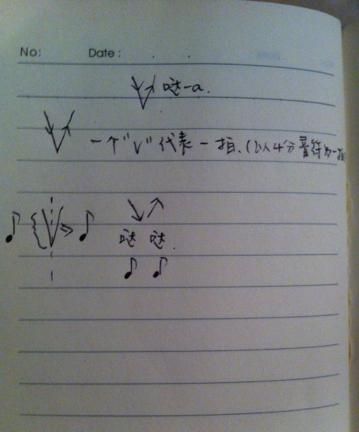 No: Date:
哒-a.
一个"V"代表一拍.(以4分音符为一拍
哒 哒.